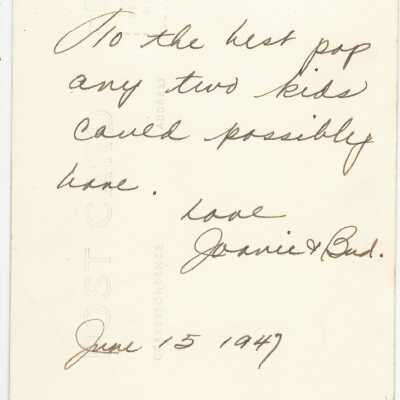 To the best pop
any two kids
could possibly
have.
Love
Joanie & Bud.
June 15 1947
POST CARD
CORRESPONDENCE
ADDRESS